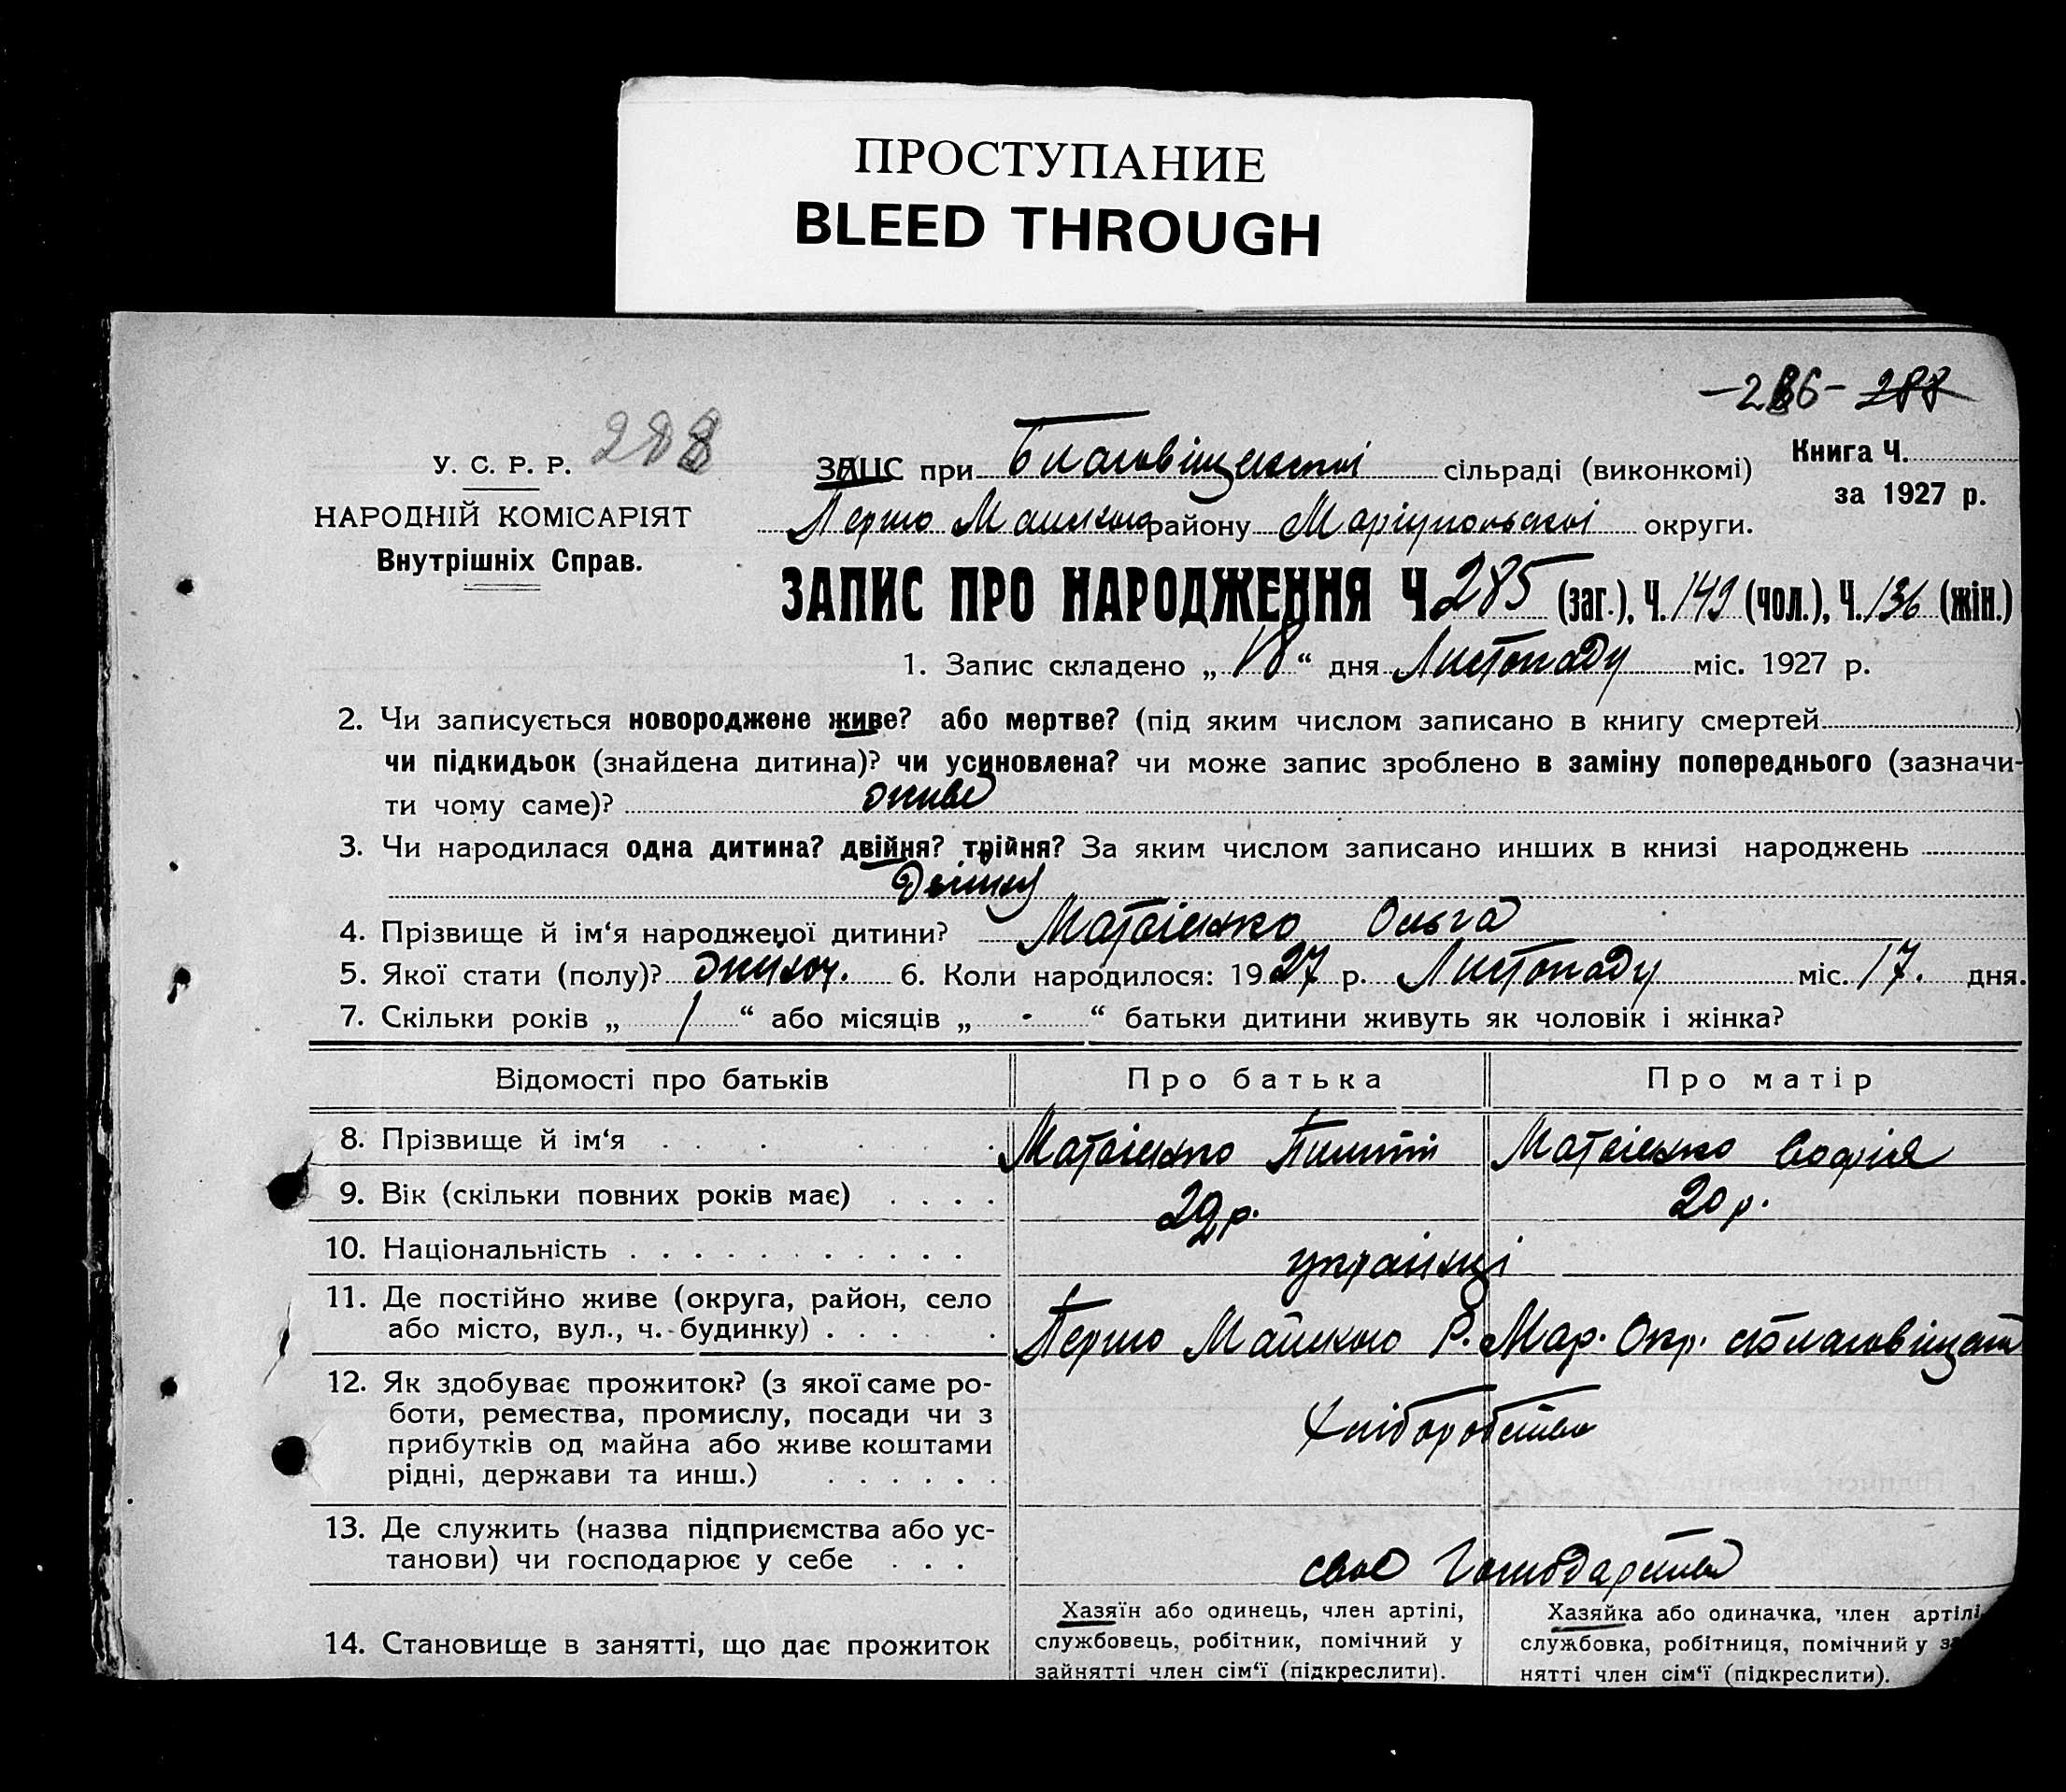 ПРОСТУПАНИЕ
BLEED THROUGH
—286— 288
У. С. Р. Р. 288
НАРОДНІЙ КОМІСАРІЯТ
Внутрішніх Справ.
ЗАЦС при Благовіщенській сільраді (виконкомі)
Книга Ч.
за 1927 р.
Перто Майського району Маріупольської округи.
ЗАПИС ПРО НАРОДЖЕННЯ Ч. 285 (заг.), Ч. 149 (чол.), Ч. 136 (жін.)
1. Запис складено „18“ дня Листопаду міс. 1927 р.
2. Чи записується новороджене живе? або мертве? (під яким числом записано в книгу смертей )
чи підкидьок (знайдена дитина)? чи усиновлена? чи може запис зроблено в заміну попереднього (зазначи-
ти чому саме)? живе
3. Чи народилася одна дитина? двійня? трійня? За яким числом записано инших в книзі народжень
Двійня
4. Прізвище й ім‘я народженої дитини? Матвієнко Ольга
5. Якої стати (полу)? жіноч. 6. Коли народилося: 1927 р. Листопаду міс. 17. дня.
7. Скільки років „ 1 “ або місяців „ - “ батьки дитини живуть як чоловік і жінка?
Відомості про батьків Про батька Про матір
8. Прізвище й ім‘я Матвієнко Пилип Матвієнко Софія
9. Вік (скільки повних років має) 29 р. 20 р.
10. Національність українці
11. Де постійно живе (округа, район, село
або місто, вул., ч. будинку) Перто Майського Р. Мар. Окр.
12. Як здобуває прожиток? (з якої саме ро-
боти, ремества, промислу, посади чи з
прибутків од майна або живе коштами
рідні, держави та инш.) Хліборобство
13. Де служить (назва підприємства або ус-
танови) чи господарює у себе своє Господарство
14. Становище в занятті, що дає прожиток
Хазяїн або одинець, член артілі,
службовець, робітник, помічний у
зайнятті член сім‘ї (підкреслити).
Хазяйка або одиначка, член артілі
службовка, робітниця, помічний у
нятті член сім‘ї (підкреслити).